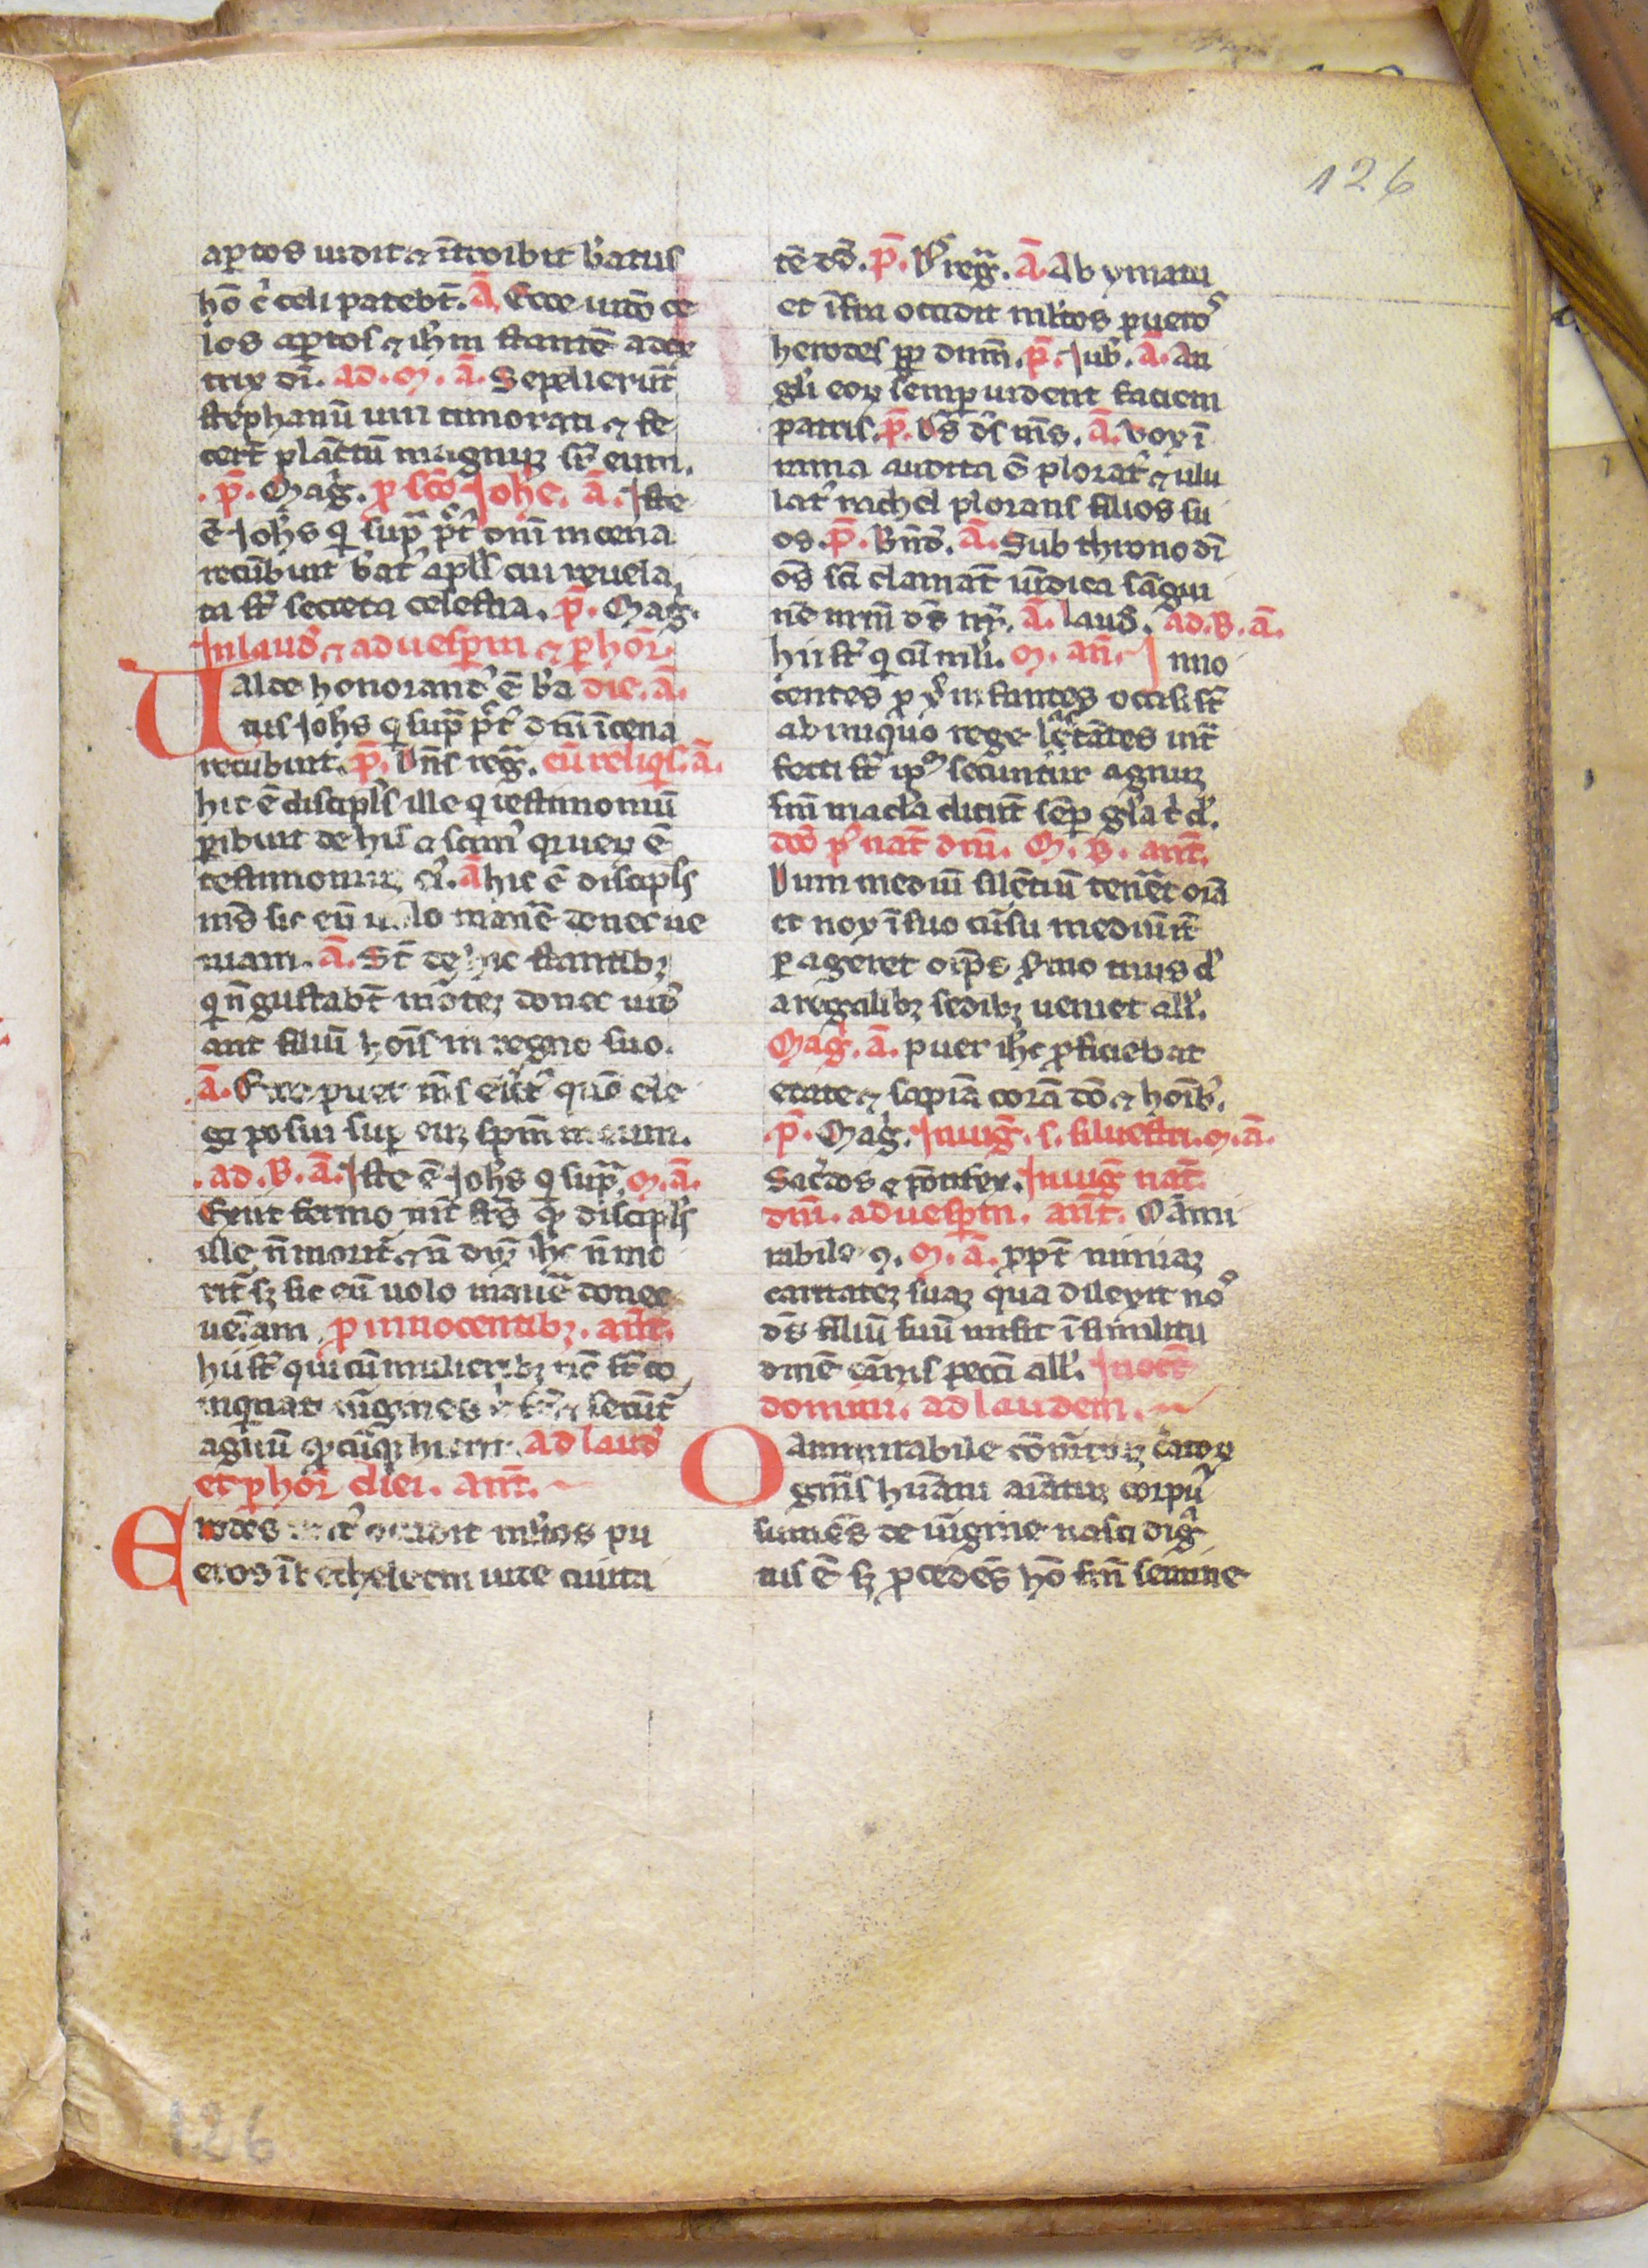 126
aꝑtos uidit ⁊ ītroibit b̄atus
hō c̄ celi patebt̄. ā. Ecce uiđo ce
los aꝑtos ⁊ ih̄m stantē a dex
tris dī. ad. m. ā. Sepelierūt
stephanū uiri timorati ⁊ fe
cert̄ plāctū magnuꝫ sr̄ eum.
p̄. Maḡ. ꝓ sc̄o Joh̄e. ā. Iste
ē Joh̄s q̄ supͣ pct̄ᵒ dn̄i in cena
recūbuit b̄at᾽ apl̄s cui reuela
ta st̄ secreta celestia. p̄. Maḡ.
In laud̄ ⁊ ad uesꝑm ⁊ ꝑ hor̄
Ualde honorand᾽ ē b̄a die. ā.
tus Joh̄s q̄ supͣ pct̄᾽ dn̄i ī cena
recubuit. p̄. Dn̄s reḡ. cū reliqis. ā.
hic ē discipl̄s ille q̄ testimoniū
ꝑibuit de hiis ⁊ scim᾽ q̄ ueꝝ ē
testimoniuꝫ ei᾽. ā hic ē discipl̄s
m̄s sic eū uolo manē donec ue
niam. ā. St̄ de hic stantibꝫ
q̄ n̄ gustabt̄ mōteꝫ donec uid̄
ant filiū hoīs in regno suo.
ā. Ecce puer m̄s elc̄t᾽ quē ele
gi posui suꝑ euꝫ spm̄ meum.
ad. B. ā. Iste ē Joh̄s q̄ supͣ. m. ā.
Exiit sermo int̄ fr̄s q̄ discipl̄s
ille n̄ morit̄ ⁊ n̄ dix᾽ ih̄c n̄ mo
rit̄ sꝫ sic eū uolo manē donec
ueīam ꝓ innocentibꝫ. ant̄.
hii st̄ qui cū mulieribꝫ nō st̄ co
inquinat uīgines st̄ ⁊ secūt̄
agnū q̄cūqꝫ hierit. ad laud̄
et ꝑ hor̄ diei. ant̄.
Erodes irat᾽ occidit ml̄tos pu
eros ī bethleem iude ciuita
tē dđ. p̄. Dn̄s reḡ. ā. A bymatu
et īfra occidit ml̄tos pueros
herodes ꝓp̄ dnm̄. p̄. Jub̄. ā. An
gli eoꝝ semꝑ uident faciem
patris. p̄. Ds̄ ds̄ ms̄. ā. Vox ī
rama audita ē plorat᾽ ⁊ ulu
lat᾽ rachel plorans filios su
os. p̄. Bn̄d. ā. Sub throno dī
oēs sc̄i clamāt uīdica sāgui
nē nr̄m ds̄ nr̄. ā. laud̄. ad. B. ā.
hii st̄ q̄ cū mli᾽. m. an̄. Inno
centes ꝓ x̄ infantes occisi st̄
ab iniquo rege lactātes int̄
fecti st̄ ipᵐ secuntur agnuꝫ
sn̄ macl̄a dicūt sēꝑ gl̄a t᾽ d᾽.
do᾽ p᾽ nat̄ dn̄i. m. B. ant̄.
Dum mediū silētiū tenēt oīa
et nox ī suo cūsu mediū it̄
ꝑ ageret oīp̄s s̄mo tuus d᾽
a regalibꝫ sedibꝫ uenit all᾽.
Maḡ. ā. puer ih̄c ꝓficiebat
etate ⁊ sapīa corā dō ⁊ hoīb᾽.
p̄. Maḡ. In uiḡ. s. siluestri. m. ā.
Sac̄dos ⁊ pōntifex. In uiḡ nat̄
dn̄i. ad uesꝑm. ant̄. O ammi
rabile 9. m. ā. ꝓpt̄ nimiaꝫ
caritateꝫ suaꝫ qua dilexit nos
ds̄ filiū suū misit ī similitu
dinē carnis pecci all᾽. In oct̄
domini. ad laudem.
O ammirabile cōmerciuꝫ c̄atoꝝ
gn̄is hūani aīatuꝫ corpus
sumēs de uīgine nasci dig
tus ē sꝫ ꝓcedēs hō sn̄ semine
126